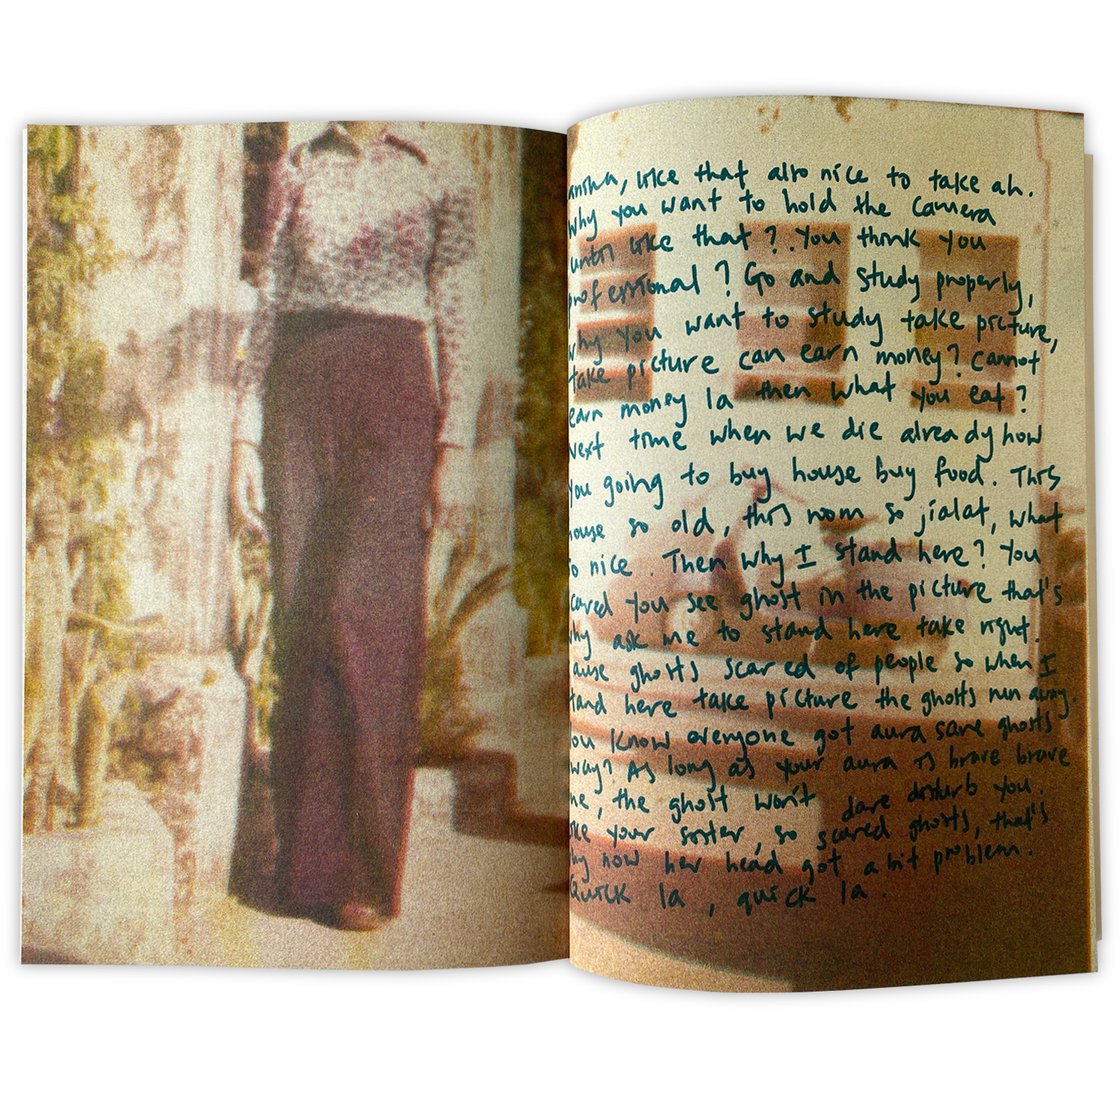 like that also nice to take ah.
why you want to hold the camera
until like that? You think you
professional? Go and study properly,
why you want to study take picture,
take picture can earn money? Cannot
earn money la then what you eat?
next time when we die already how
you going to buy house buy food. This
house so old, this room so jialat, what
so nice. Then why I stand here? You
scared you see ghost in the picture that's
why ask me to stand here take right.
cause ghosts scared of people so when I
stand here take picture the ghosts run away.
you know everyone got aura scare ghosts
away? As long as your aura is brave brave
one, the ghost won't dare disturb you.
like your sister, so scared ghosts, that's
why now her head got a bit problem.
Quick la, quick la.